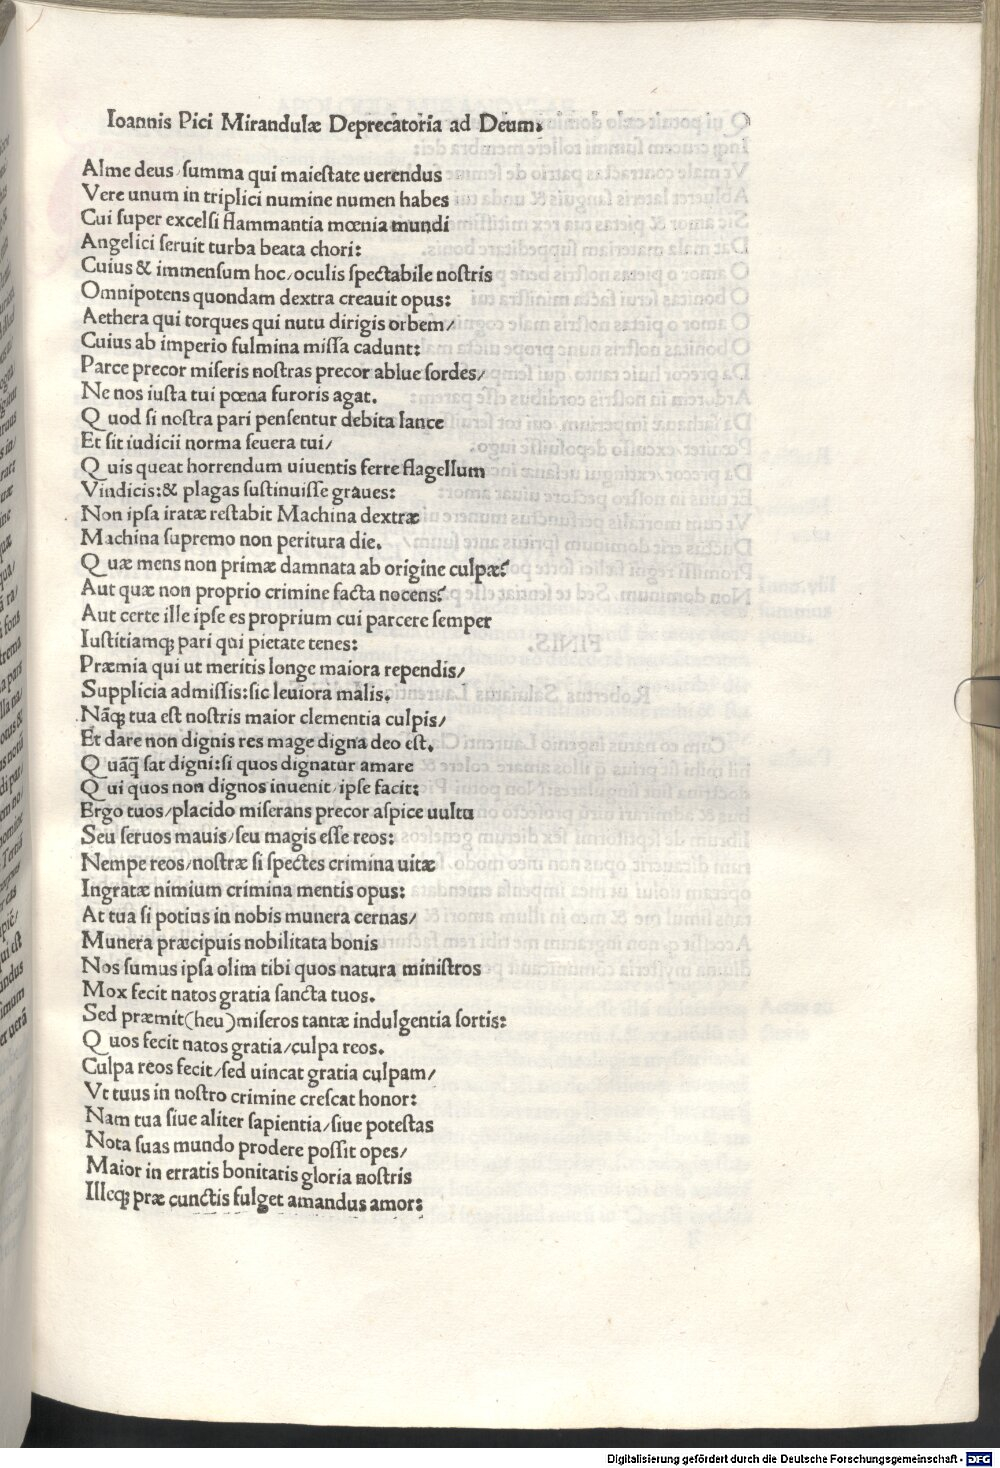 Ioannis Pici Mirandulæ Deprecatoria ad Deum.
Alme deus/summa qui maiestate uerendus
Vere unum in triplici numine numen habes
Cui super excelsi flammantia mœnia mundi
Angelici seruit turba beata chori:
Cuius & immensum hoc/oculis spectabile nostris
Omnipotens quondam dextra creauit opus:
Aethera qui torques qui nutu dirigis orbem/
Cuius ab imperio fulmina missa cadunt:
Parce precor miseris nostras precor ablue sordes/
Ne nos iusta tui pœna furoris agat.
Quod si nostra pari pensentur debita lance
Et sit iudicii norma seuera tui/
Quis queat horrendum uiuentis ferre flagellum
Vindicis:& plagas sustinuisse graues:
Non ipsa iratæ restabit Machina dextræ
Machina supremo non peritura die.
Quæ mens non primæ damnata ab origine culpæ?
Aut quæ non proprio crimine facta nocens?
Aut certe ille ipse es proprium cui parcere semper
Iustitiamq; pari qui pietate tenes:
Præmia qui ut meritis longe maiora rependis/
Supplicia admissis:sic leuiora malis.
Nāq; tua est nostris maior clementia culpis/
Et dare non dignis res mage digna deo est.
Quāq̄ sat digni:si quos dignatur amare
Qui quos non dignos inuenit/ipse facit:
Ergo tuos/placido miserans precor aspice uultu
Seu seruos mauis/seu magis esse reos:
Nempe reos/nostræ si spectes crimina uitæ
Ingratæ nimium crimina mentis opus:
At tua si potius in nobis munera cernas/
Munera præcipuis nobilitata bonis
Nos sumus ipsa olim tibi quos natura ministros
Mox fecit natos gratia sancta tuos.
Sed præmit(heu)miseros tantæ indulgentia sortis:
Quos fecit natos gratia/culpa reos.
Culpa reos fecit/sed uincat gratia culpam/
Vt tuus in nostro crimine crescat honor:
Nam tua siue aliter sapientia/siue potestas
Nota suas mundo prodere possit opes/
Maior in erratis bonitatis gloria nostris
Illeq; præ cunctis fulget amandus amor:
Digitalisierung gefördert durch die Deutsche Forschungsgemeinschaft - DFG